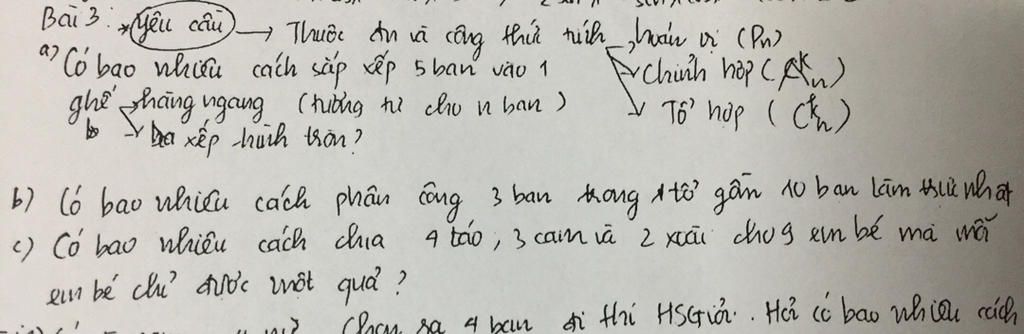 Bài 3: * Yêu cầu → Thuộc đn và công thức tính → hoán vị (Pn)
a) Có bao nhiêu cách sắp xếp 5 bạn vào 1 → Chỉnh hợp (A^k_n)
ghế → hàng ngang (tương tự cho n bạn) → Tổ hợp (C^k_n)
→ xếp hình tròn?
b) Có bao nhiêu cách phân công 3 bạn trong 1 tổ gồm 10 bạn làm trực nhật
c) Có bao nhiêu cách chia 4 táo, 3 cam và 2 xoài cho 9 em bé mà mỗi
em bé chỉ được một quả?
Chọn ra 4 bạn đi thi HSGiỏi. Hỏi có bao nhiêu cách